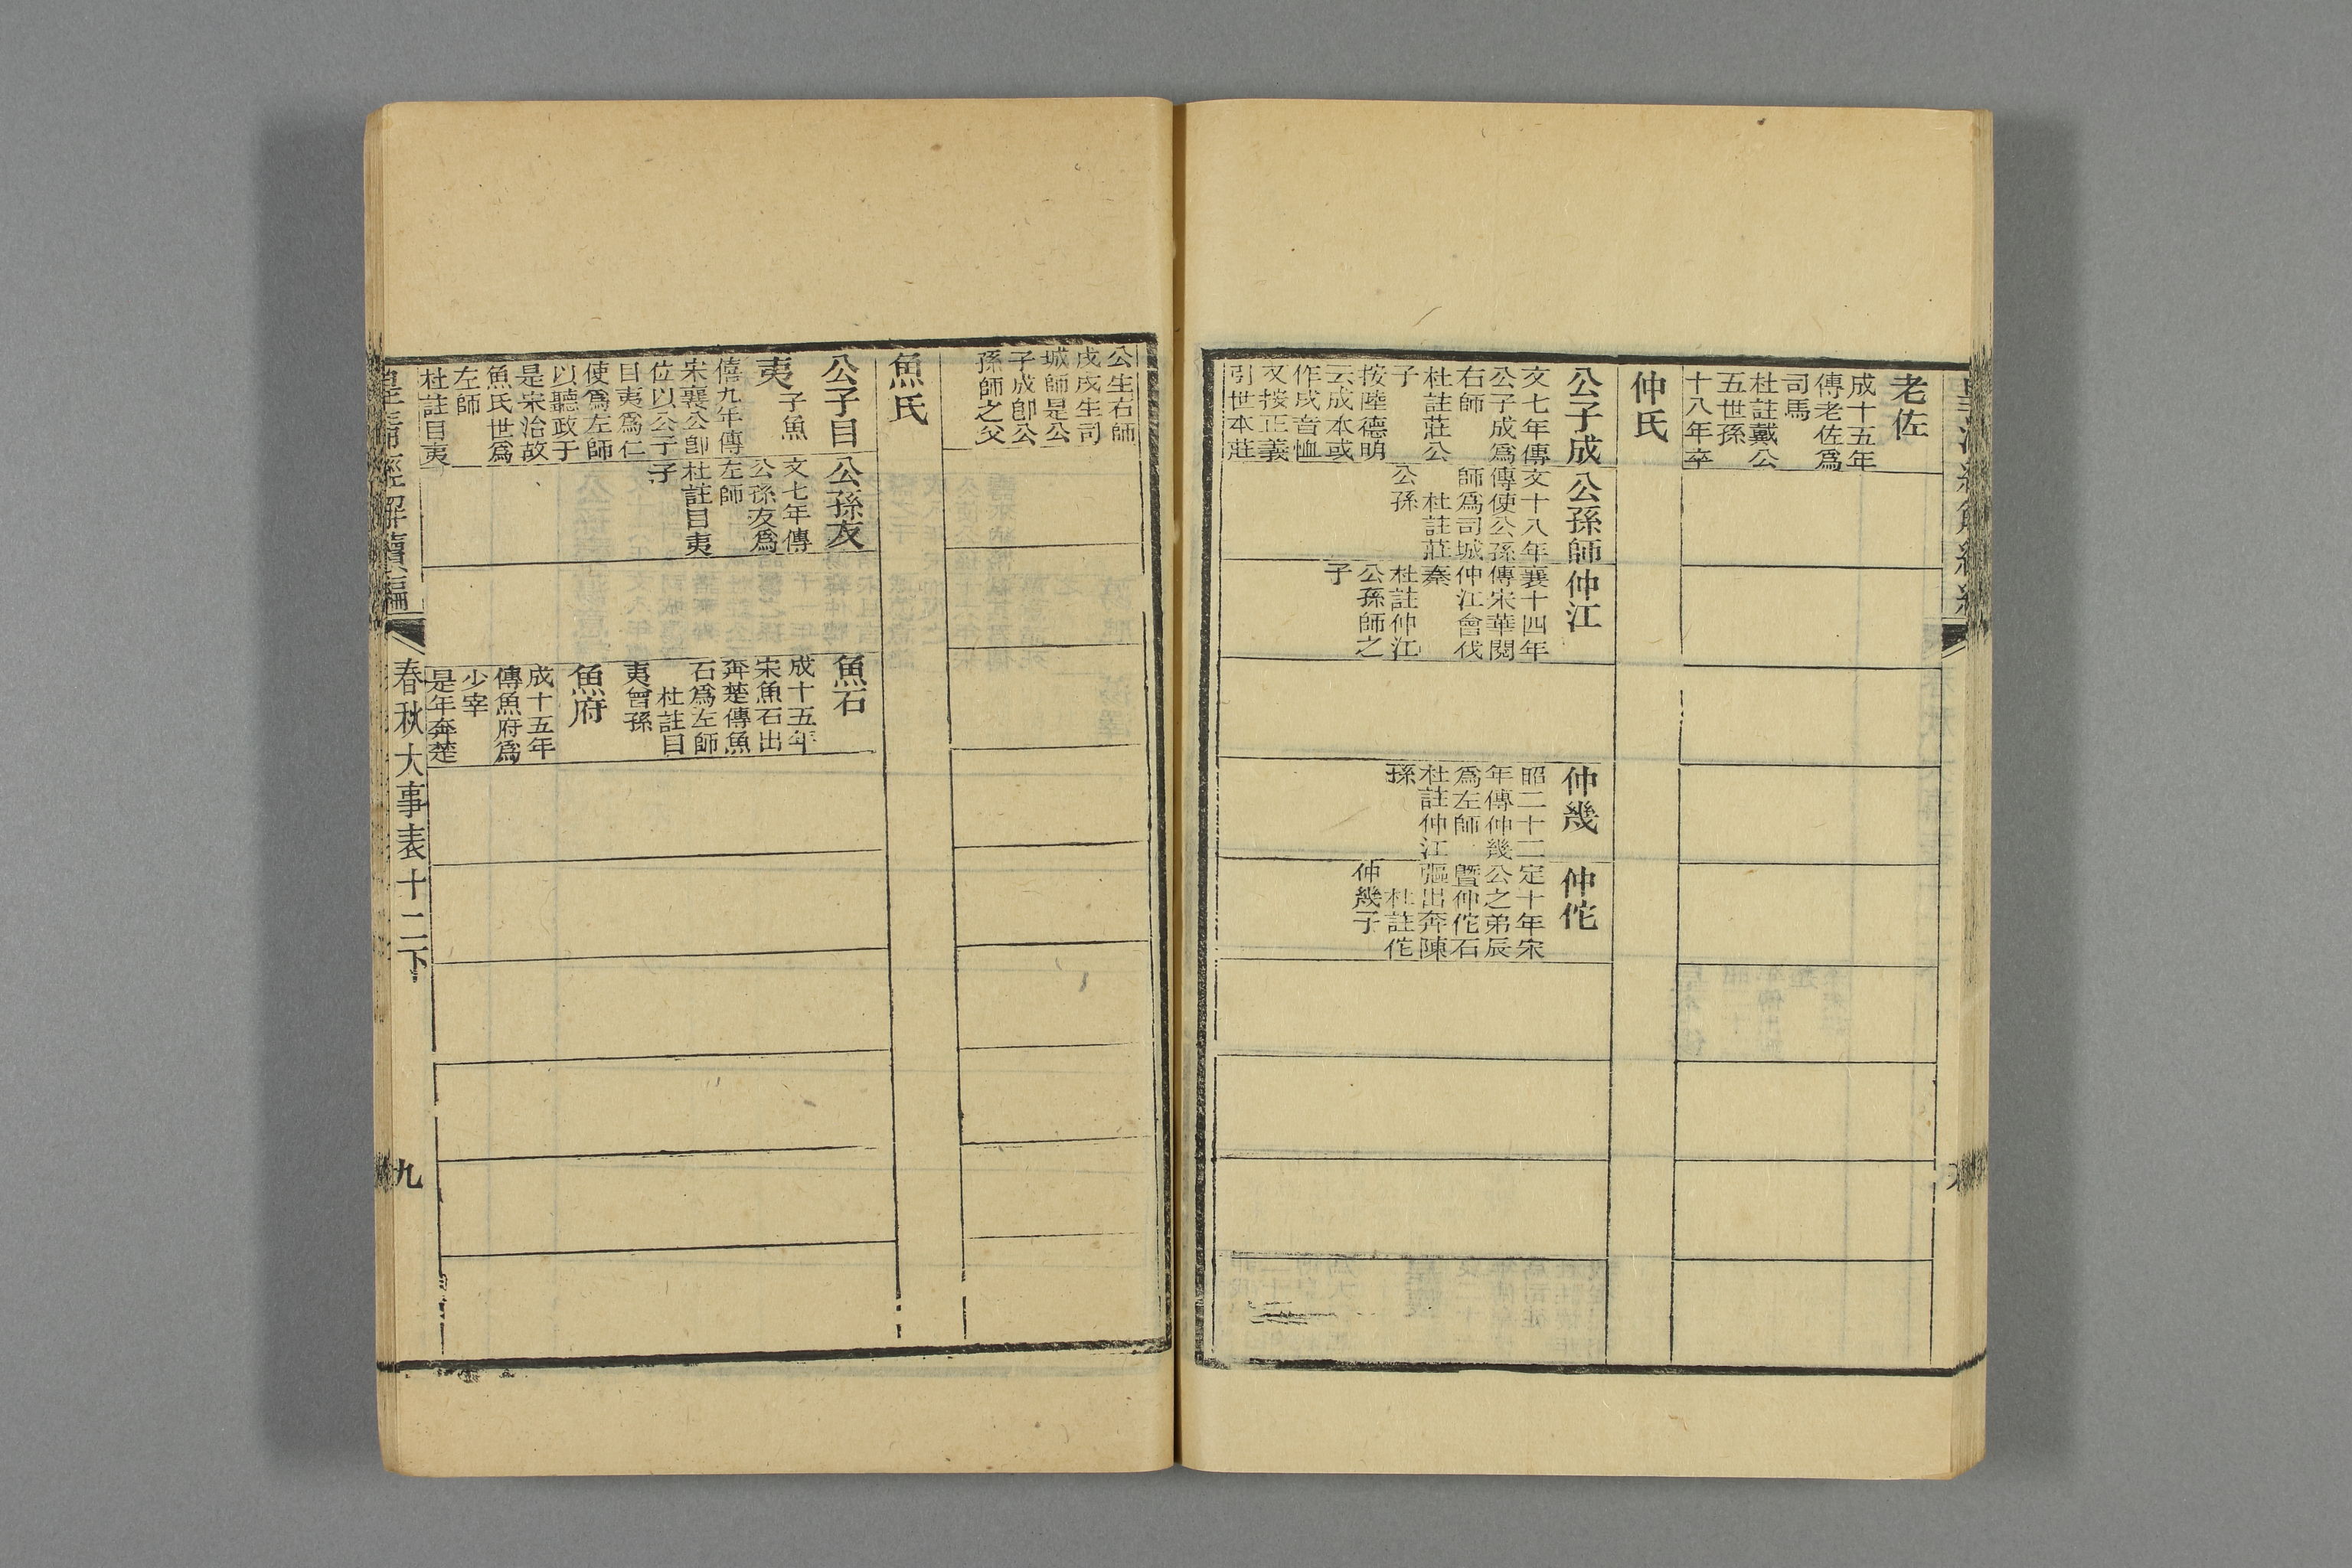 老佐
成十五年
傳老佐爲
司馬
杜註戴公
五世孫
十八年卒
仲氏
公子成
文七年傳
公子成爲
右師
杜註莊公
子
按陸德明
云成本或
作戌音恤
又按正義
引世本莊
公孫師
文十八年
傳使公孫
師爲司城
杜註莊
公孫
仲江
襄十四年
傳宋華閱
仲江會伐
秦
杜註仲江
公孫師之
子
仲幾
昭二十二
年傳仲幾
爲左師
杜註仲江
孫
仲佗
定十年宋
公之弟辰
曁仲佗石
彄出奔陳
杜註佗
仲幾子
公生右師
戌戌生司
城師是公
子成卽公
孫師之父
魚氏
公子目
夷子魚
僖九年傳
宋襄公卽
位以公子
目夷爲仁
使爲左師
以聽政于
是宋治故
魚氏世爲
左師
杜註目夷
公孫友
文七年傳
公孫友爲
左師
杜註目夷
子
魚石
成十五年
宋魚石出
奔楚傳魚
石爲左師
杜註目
夷曾孫
魚府
成十五年
傳魚府爲
少宰
是年奔楚
皇清經解續編
春秋大事表十二下
九